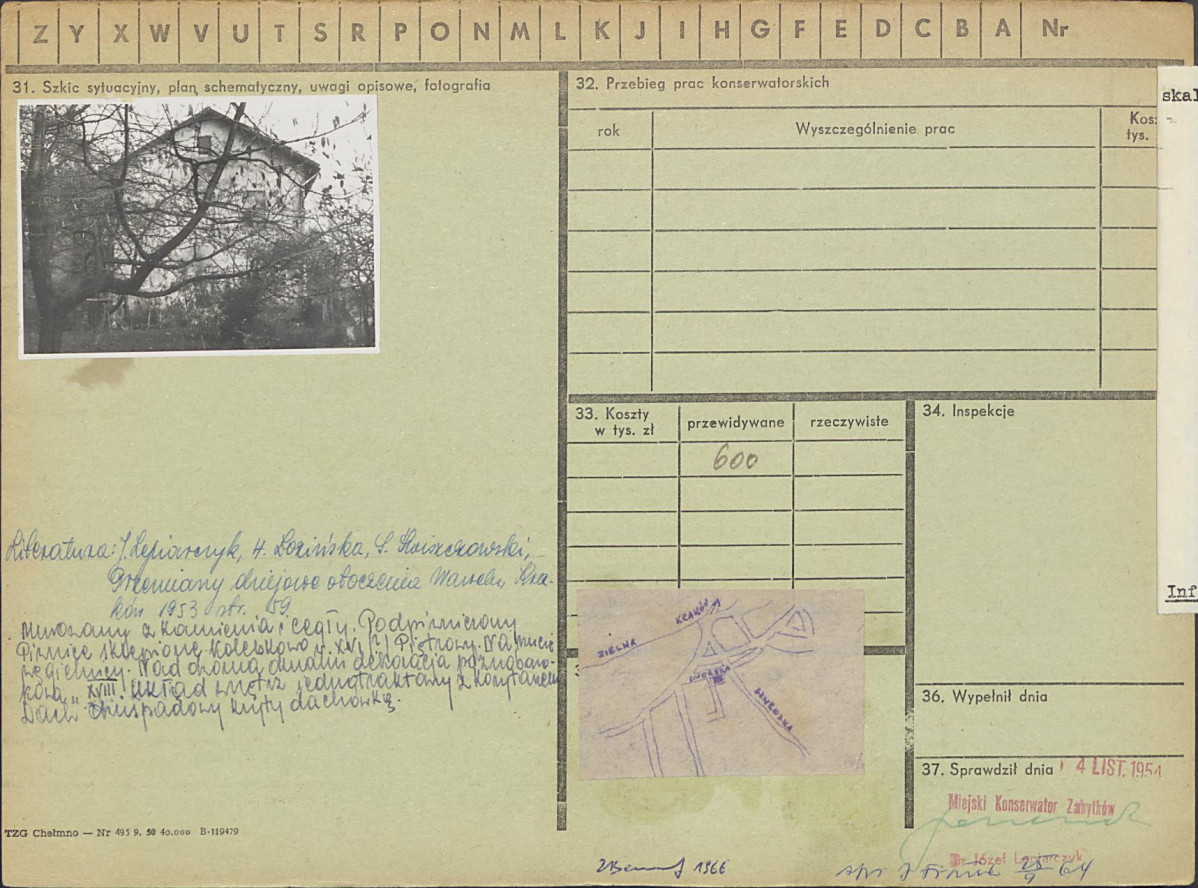 Z Y X W V U T S R P O N M L K J I H G F E D C B A Nr
31. Szkic sytuacyjny, plan schematyczny, uwagi opisowe, fotografia
Literatura: J. Lepiarczyk, H. Łozińska, S. Świszczowski,
Przemiany dziejowe otoczenia Wawelu Kra-
ków 1953 str. 59
Murowany z kamienia i cegły. Podpiwniczony
Piwnice sklepione kolebkowo w. XVI (?) Piętrowy. Na
węgielnicy. Nad dwoma oknami dekoracja późnobaro-
kowa w. XVIII. Układ wnętrz jednotraktowy z korytarzem
Dach dwuspadowy kryty dachówką.
TZG Chełmno — Nr 495 9. 50 40.000 B-119479
32. Przebieg prac konserwatorskich
rok
Wyszczególnienie prac
tys.
33. Koszty
w tys. zł
przewidywane
rzeczywiste
600
ZIELNA
KRAKÓW
DWORSKA
34. Inspekcje
36. Wypełnił dnia
37. Sprawdził dnia
4 LIST. 1954
Miejski Konserwator Zabytków
Dr Józef Lepiarczyk
1966
64
skal
Inf